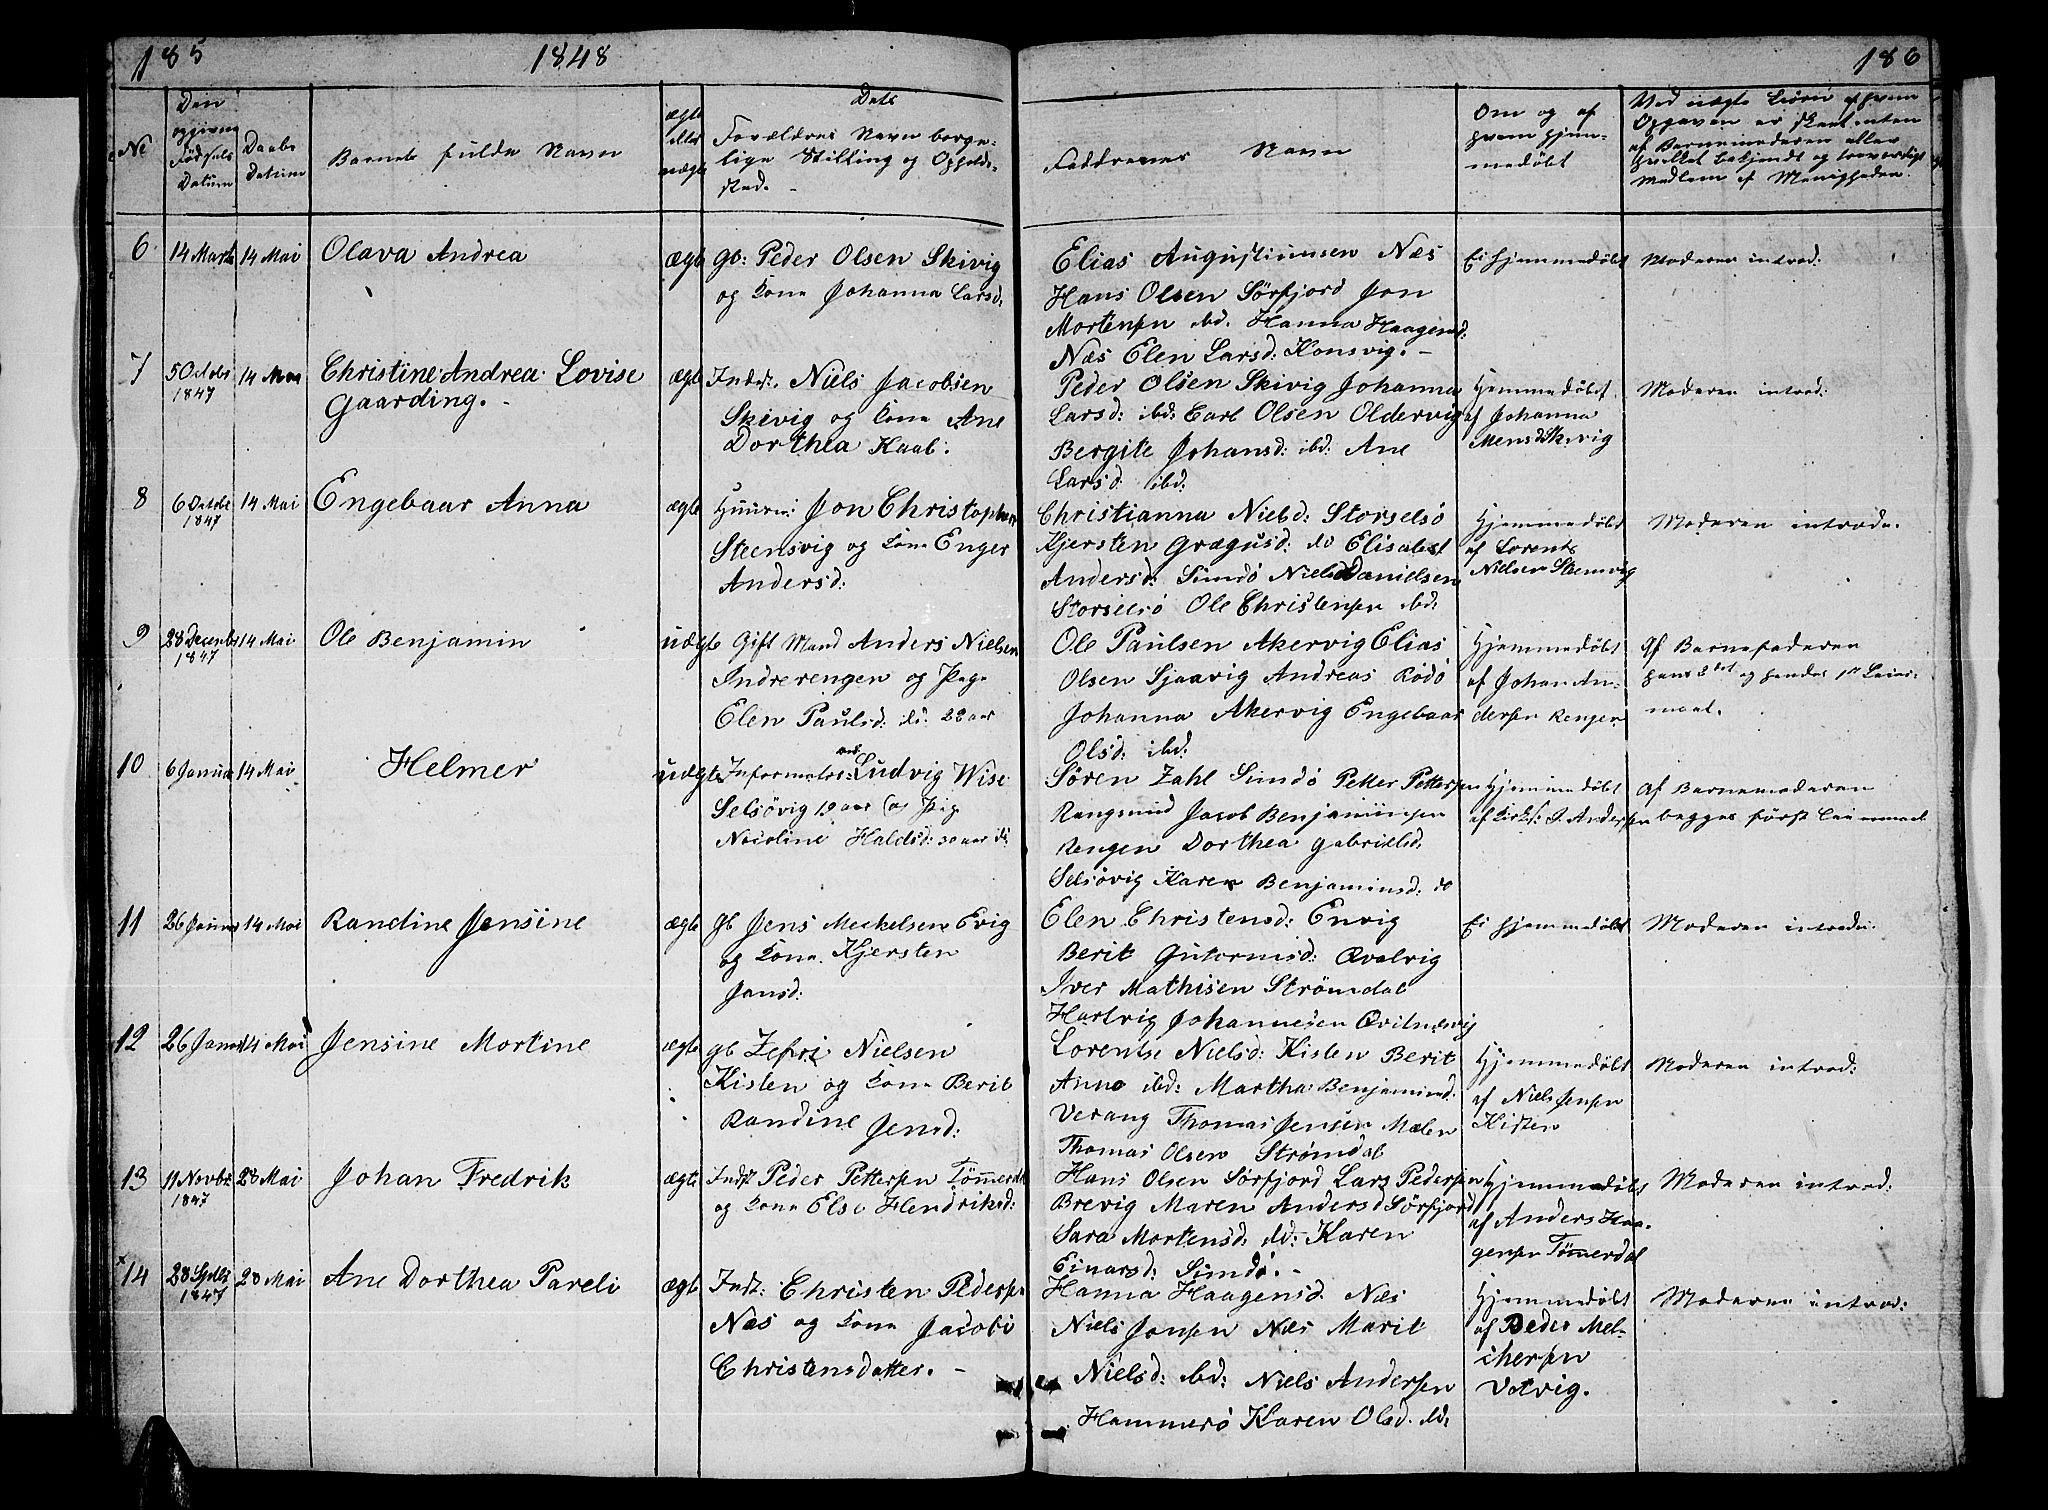 185
1848
186
No
Den opgivne Födsels Datum
Daabs Datum
Barnets fulde Navn
ægte eller uægte
Dets Forældres Navn borgelige Stilling og Opholdssted.
Faddrenes Navn
Om og af hvem hjemmedöbt
Ved uægte Börn af hvem Opgaven er skeet enten af Barnemoderen eller hvilket bekjendt og troværdigt Medlem af Menigheden.
6 14 Marts 14 Mai Olava Andrea ægte gb: Peder Olsen Skivig
og Kone Johanna Larsd:
Elias Augustinusen Næs
Hans Olsen Sörfjord Jon
Mortensen ibd. Hanna Haagensd:
Næs Elen Larsd: Konsvig. –
Ei hjemmedöbt
Moderen introd:
7 5 Octobr 1847 14 Mai Christine Andrea Lovise
Gaarding. –
ægte Indst. Niels Jacobsen
Skivig og Kone Ane
Dorthea Kaal.
Peder Olsen Skivig Johanna
Larsd: ibd: Carl Olsen Oldervig
Bergite Johansd: ibd: Ane
Larsd. ibd:
Hjemmedöbt
af Johanna
Mensd Skivig
Moderen introd:
8 6 Octobr 1847 14 Mai Engebaar Anna
ægte Huusm: Jon Christophers
Steensvig og Kone Enger
Andersd:
Christianna Nielsd: Storselsö
Kjersten Grægusd: do Elisabet
Andersd: Simdö Niels Danielsen
Storselsö Ole Christensen ibd:
Hjemmedöbt
af Lorents
Nielsen Stensvig
Moderen introde.
9 28 Decembr 1847 14 Mai Ole Benjamin
uægte Gift Mand Anders Nielsen
Indrerengen og Pige
Elen Paulsd. di: 22 aar
Ole Paulsen Akervig Elias
Olsen Sjaavig Andreas Rödö
Johanna Akervig Engebaar
Olsd: ibd:
Hjemmedöbt
af Johan An-
dersen Rengen
Af Barnefaderen
hans 2det og hendes 1ste Leier-
maal.
10 6 Januar 14 Mai Helmer
uægte Informator: Ludvig Wise
Selsövig 19 aar og Pig
Nicoline Haldsd: 30 aar di:
Sören Zahl Simdö Petter Pettersen
Rangsund Jacob Benjaminsen
Rengen Dorthea Gabrielsd.
Selsövig Karen Benjaminsd: do
Hjemmedöbt
af Kirks: J. Andersen
Af Barnemoderen
begges först Leiermaal
11 26 Januar 14 Mai Randine Jensine
ægte gb Jens Meckelsen Evig
og Kone Kjersten
Jansd:
Elen Christensd: Envig
Berit Gutormsd: Qvalvig
Iver Mathisen Strömdal
Hartvig Johannesen Qvitnævig
Ei hjemmedöbt
Moderen introd:
12 26 Januar 14 Mai Jensine Mortine
ægte gb Zefri Nielsen
Kisten og Kone Berit
Randine Jensd:
Lorentse Nielsd: Kisten Berit
Anne ibd: Martha Benjaminsd.
Verang Thomas Jensen Mælen
Thomas Olsen Strömdal
Hjemmedöbt
af Niels Jensen
Kisten
Moderen introd:
13 11 Novbr 1847 28 Mai Johan Fredrik
ægte Indst Peder Pettersen Tömmerdal
og Kone Else Hendriksd:
Hans Olsen Sörfjord Lars Pedersen
Brevig Maren Andersd Sörfjord
Sara Mortensd: ibd: Karen
Einarsd: Simdö. –
Hjemmedöbt
af Anders Haa-
gensen Tömmerdal
Moderen introd:
14 28 Septbr 1847 28 Mai Ane Dorthea Pareli
ægte Indst: Christen Pedersen
Næs og Kone Jacobi
Christensdatter. –
Hanna Haagensd. Næs
Niels Jonsen Næs Marit
Nielsd: ibd: Niels Andersen
Hammerö Karen Olsd. ibd:
Hjemmedöbt
af Peder Mel-
chersen
Votvig.
Moderen introd: